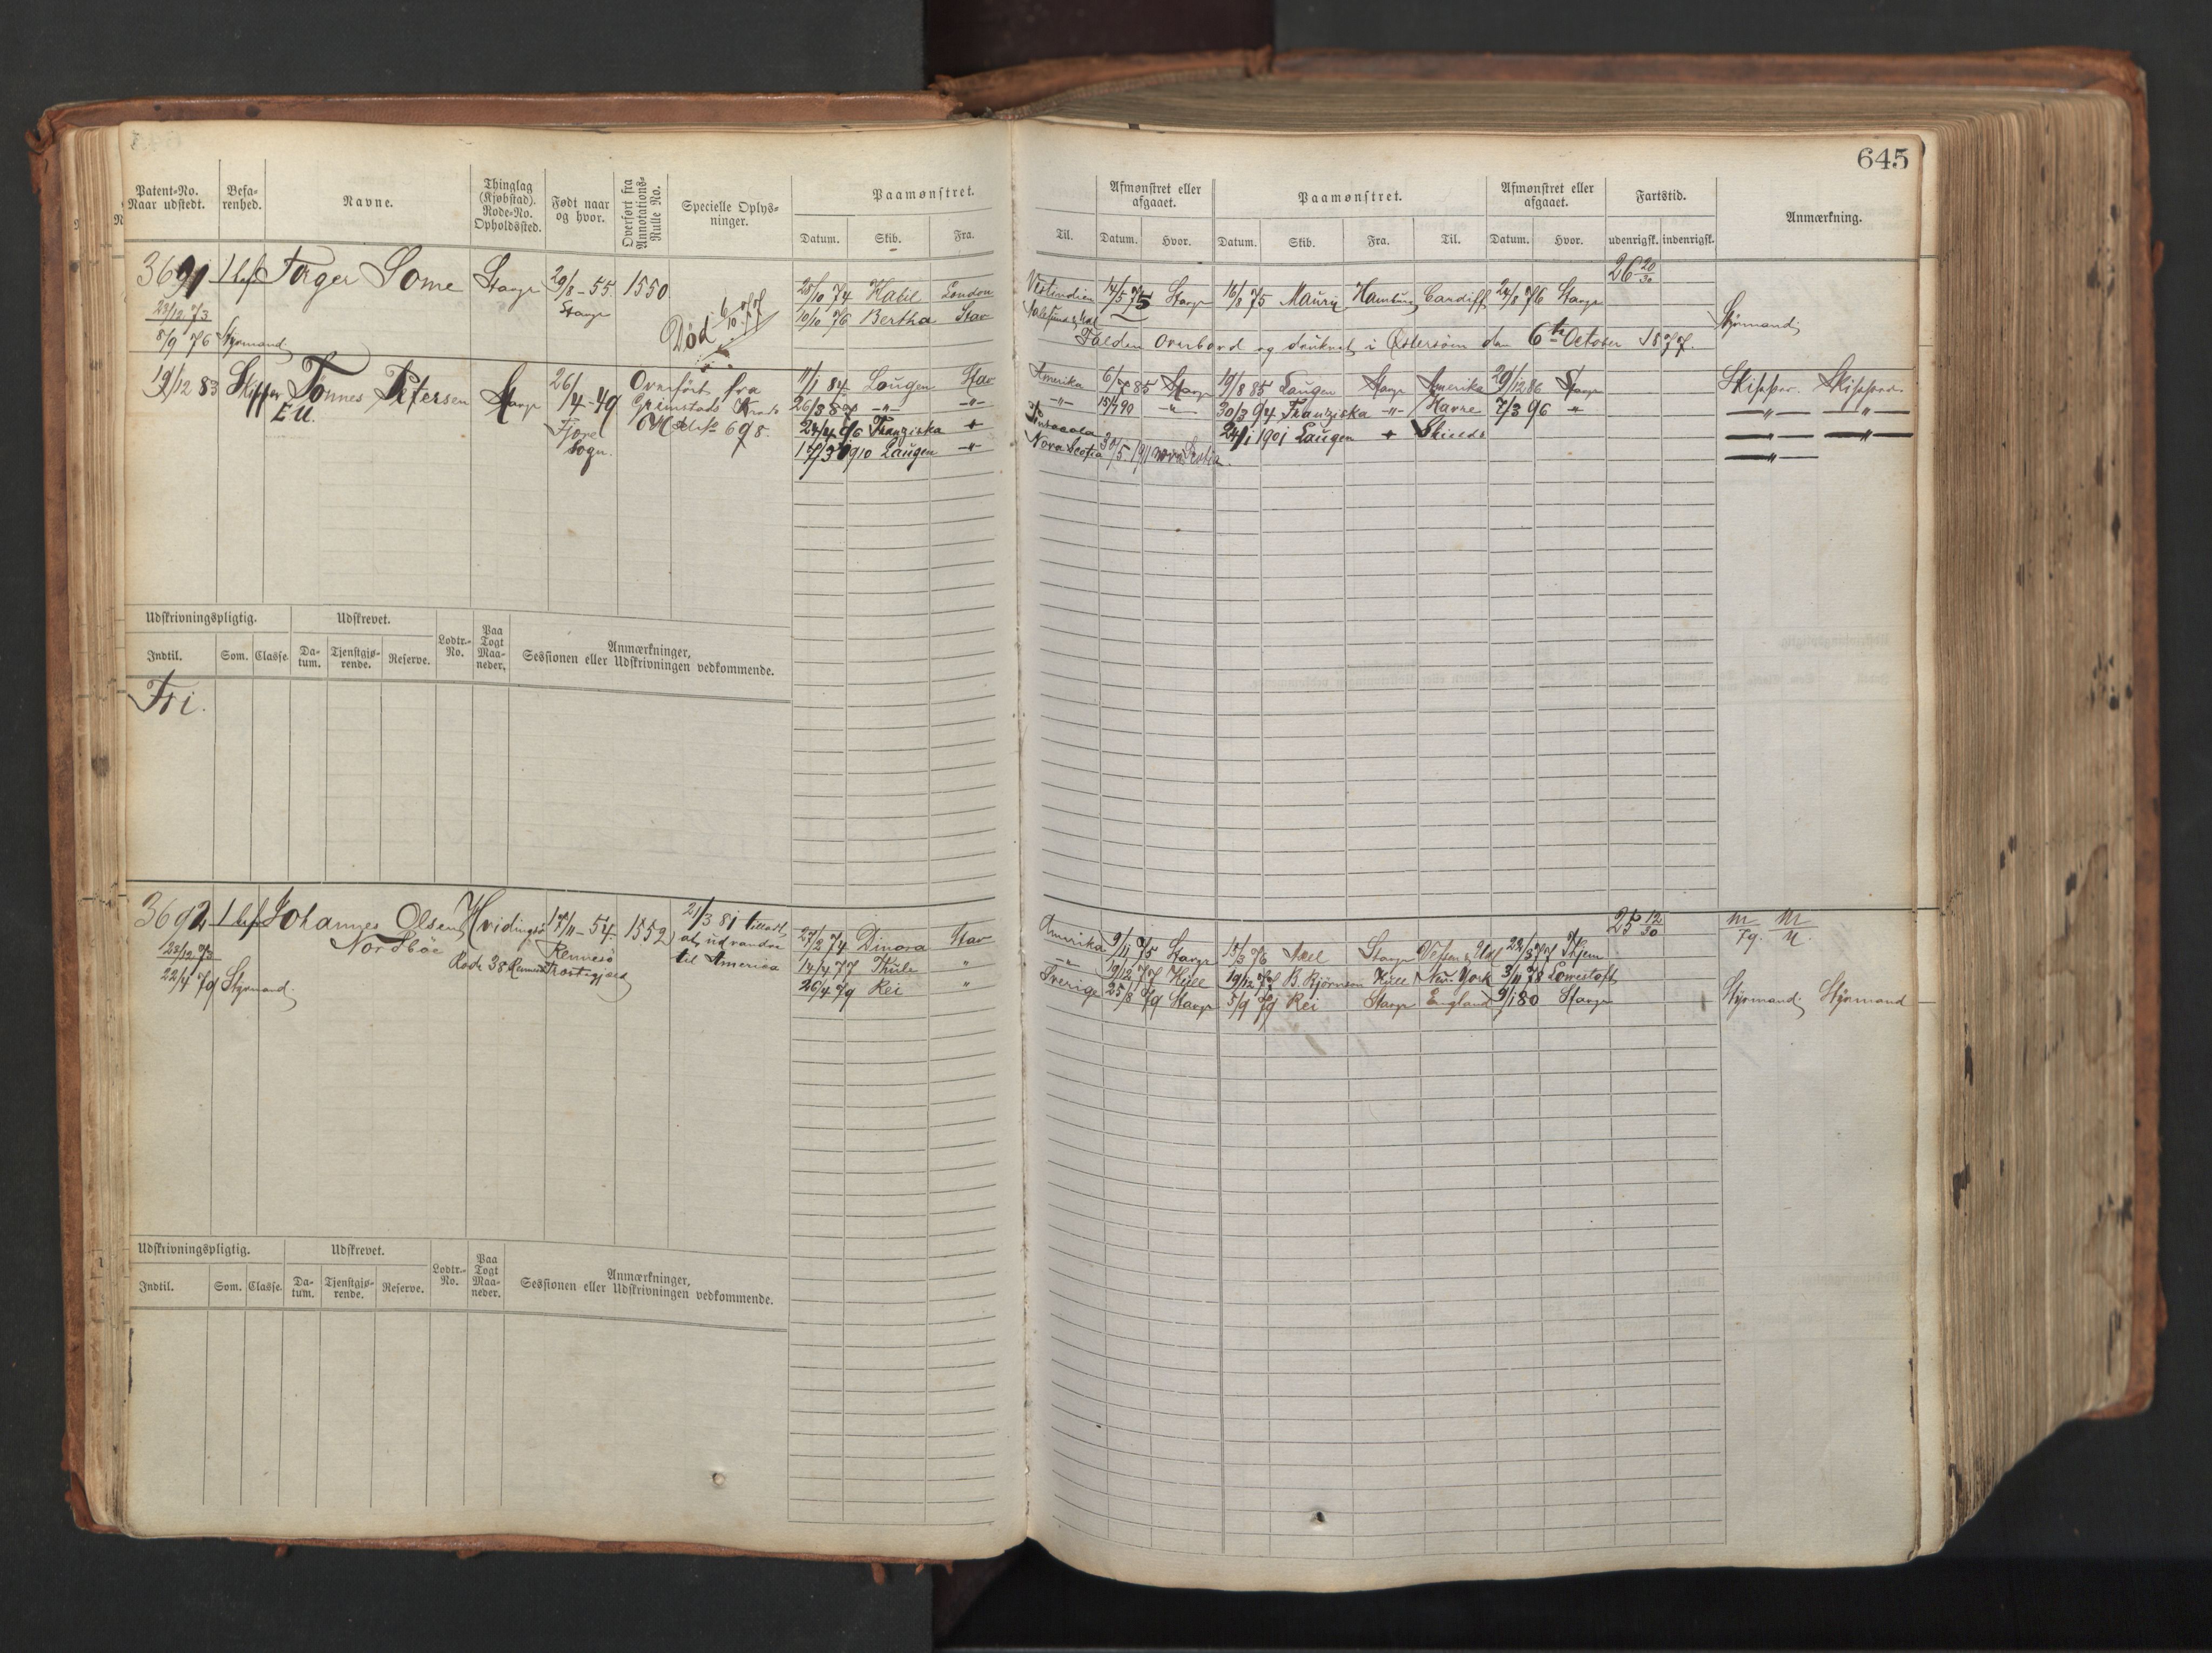 645
Patent-No. Naar udstedt. Befarenhed. Navne. Thinglag (Kjøbstad). Rode-No. Opholdssted. Født naar og hvor. Overført fra Annotations-Rulle No. Specielle Oplysninger. Paamønstret. Datum. Skib. Fra.
Til. Afmønstret eller afgaaet. Datum. Hvor. Paamønstret. Datum. Skib. Fra. Til. Afmønstret eller afgaaet. Datum. Hvor. Fartstid. udenrigsk. indenrigsk. Anmærkning.
3691 1 bef Torger Some Stavgr 29/8-55 1550
26 20/30
25/10 74 Habil London Vestindien 14/5 75 Stavgr 16/8 75 Mauriz Hamburg Cardiff 24/8 76 Stavgr
23/12 73 Stavgr Død 6/10 77 10/10 76 Bertha Stav
Styrmand
8/9 76 Styrmand
Falden Overbord og druknet i Østersøen den 6te October 1877.
19/12 83 Skipper Tönnes Petersen Stavgr 26/4-49 Overført fra 11/1 84 Lougen Stav Amerika 85 Stavgr 19/8 85 Laugen Stavgr Amerika 29/12 86 Stavgr Skipper. Skipper.
E U. Grimstads 26/3 87 -"- -"- -"- 90 -"- 30/3 94 Franziska -"- Havre 7/3 96 " -"- -"-
Fjorel No 698. 96 Franziska + Pensacola 24/1 1901 Laugen + Shields -"- -"-
Sogn. 17/3 1910 Laugen -"- Nova Scotia 30/5 1911 Nova Scotia. -"-
Udskrivningspligtig. Udskrevet. Lodtr.-No. Paa Togt Maaneder. Anmærkninger, Sessionen eller Udskrivningen vedkommende.
Indtil. Som. Classe. Datum. Tjenstgjørende. Reserve.
Fri.
3692 1 bef Johannes Olsen Hvidingsö 17/11-54. 1552 21/3 81 tilladt 27/2 74 Dinora Stav Amerika 9/11 75 Stavgr 15/3 76 Axel Stavgr 22/5 77 25 12/30
23/12 73 Nordböe Rennesö at udvandre 14/4 77 Thule " -"- 19/12 77 Hull 19/12 77 B. Björnson Hull New York 3/11 78 Lowestoft
22/4 79 Styrmand. Rode 38 til America 26/4 79 Rei " Sverige 25/8 79 Stavgr 5/9 79 Rei Stavgr England 9/1 80 Stavgr Styrmand. Styrmand
Udskrivningspligtig. Udskrevet. Lodtr.-No. Paa Togt Maaneder. Anmærkninger, Sessionen eller Udskrivningen vedkommende.
Indtil. Som. Classe. Datum. Tjenstgjørende. Reserve.